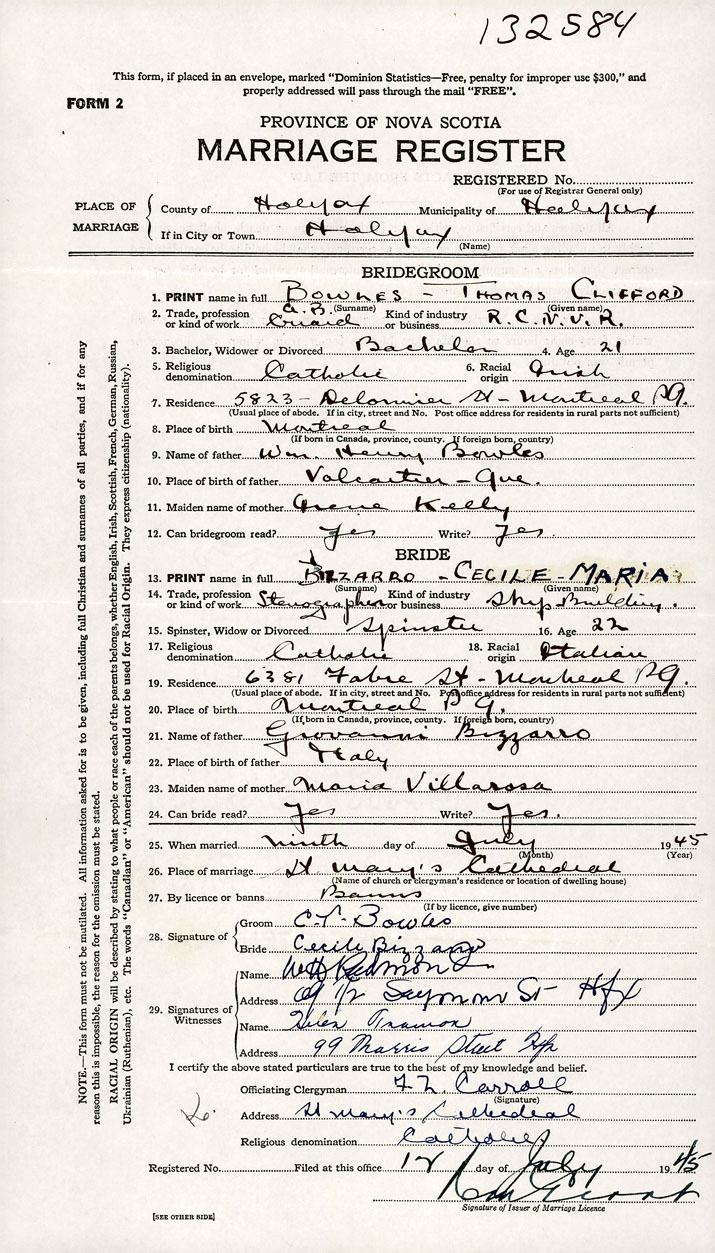 132584
This form, if placed in an envelope, marked "Dominion Statistics—Free, penalty for improper use $300," and
properly addressed will pass through the mail "FREE".
FORM 2
PROVINCE OF NOVA SCOTIA
MARRIAGE REGISTER
REGISTERED No.
(For use of Registrar General only)
PLACE OF MARRIAGE
County of Halifax Municipality of Halifax
If in City or Town Halifax
(Name)
BRIDEGROOM
1. PRINT name in full BOWLES - THOMAS CLIFFORD
(Surname) (Given name)
2. Trade, profession or kind of work A.B. Guard Kind of industry or business R.C.N.V.R.
3. Bachelor, Widower or Divorced Bachelor 4. Age 21
5. Religious denomination Catholic 6. Racial origin Irish
7. Residence 5823 - Delorimier St - Montreal P.Q.
(Usual place of abode. If in city, street and No. Post office address for residents in rural parts not sufficient)
8. Place of birth Montreal
(If born in Canada, province, county. If foreign born, country)
9. Name of father Wm. Henry Bowles
10. Place of birth of father Valcartier - Que.
11. Maiden name of mother Irene Kelly
12. Can bridegroom read? Yes Write? Yes.
BRIDE
13. PRINT name in full BIZZARRO - CECILE - MARIA
(Surname) (Given name)
14. Trade, profession or kind of work Stenographer Kind of industry or business Ship Building.
15. Spinster, Widow or Divorced Spinster 16. Age 22
17. Religious denomination Catholic 18. Racial origin Italian
19. Residence 6381 Fabre St - Montreal P.Q.
(Usual place of abode. If in city, street and No. Post office address for residents in rural parts not sufficient)
20. Place of birth Montreal P.Q.
(If born in Canada, province, county. If foreign born, country)
21. Name of father Giovanni Bizzarro
22. Place of birth of father Italy
23. Maiden name of mother Maria Villarosa
24. Can bride read? Yes Write? Yes.
25. When married ninth day of July 1945
(Month) (Year)
26. Place of marriage St Mary's Cathedral
(Name of church or clergyman's residence or location of dwelling house)
27. By licence or banns Banns
(If by licence, give number)
28. Signature of
Groom Bowles
Bride Cecile Bizzarro
29. Signatures of Witnesses
Name Redmond
Address St Hfx
Name Helen
Address 99 Morris Street Hfx
I certify the above stated particulars are true to the best of my knowledge and belief.
Officiating Clergyman Carroll
(Signature)
Address St Mary's Cathedral
Religious denomination Catholic
Registered No. Filed at this office 12 day of July 1945
Signature of Issuer of Marriage Licence
[SEE OTHER SIDE]
NOTE.—This form must not be mutilated. All information asked for is to be given, including full Christian and surnames of all parties, and if for any
reason this is impossible, the reason for the omission must be stated.
RACIAL ORIGIN will be described by stating to what people or race each of the parents belongs, whether English, Irish, Scottish, French, German, Russian,
Ukrainian (Ruthenian), etc. The words "Canadian" or "American" should not be used for Racial Origin. They express citizenship (nationality).